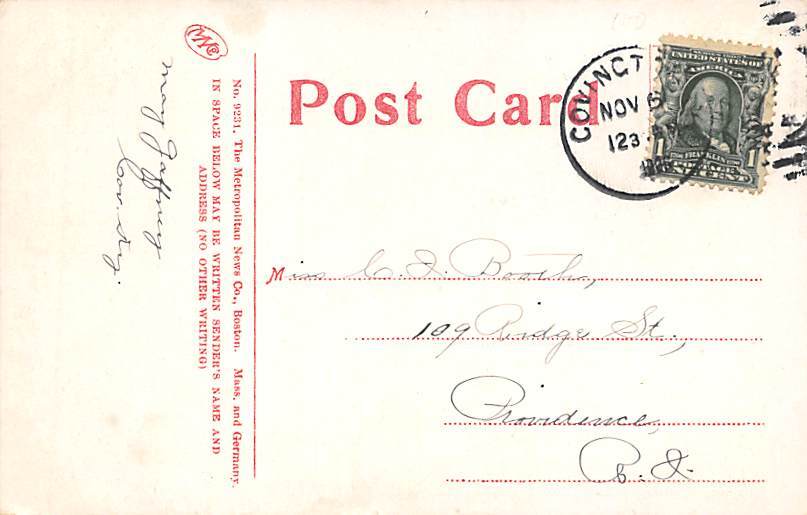 Post Card
COVINGT
NOV 6
123
UNITED STATES OF
AMERICA
1 FRANKLIN 1
ONE CENT
Miss C. I. Booth,
109 Ridge St.,
Providence,
R. I.
No. 9231. The Metropolitan News Co., Boston. Mass. and Germany.
IN SPACE BELOW MAY BE WRITTEN SENDER'S NAME AND
ADDRESS (NO OTHER WRITING)
May Gaffney
Cov. Ky.